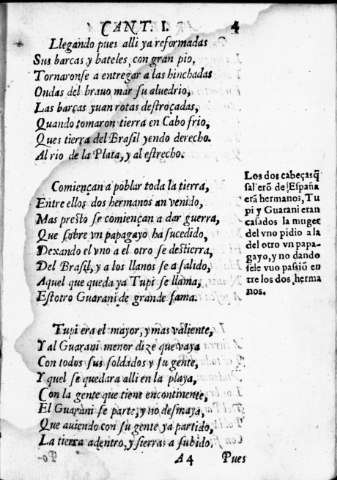 CANT. I. 4
Llegando pues alli ya reformadas
Sus barcas y bateles, con gran pio,
Tornaronse a entregar a las hinchadas
Ondas del brauo mar su aluedrio,
Las barcas yuan rotas destroçadas,
Quando tomaron tierra en Cabo frio,
Ques tierra del Brasil yendo derecho.
Al rio de la Plata, y al estrecho.
Comiençan a poblar toda la tierra,
Entre ellos dos hermanos an venido,
Mas presto se comiençan a dar guerra,
Que sobre vn papagayo ha sucedido,
Dexando el vno a el otro se destierra,
Del Brasil, y a los llanos se a salido,
Aquel que queda ya Tupi se llama,
Estotro Guarani de grande fama.
Los dos cabeças q̃
salierõ de España
erã hermanos, Tu
pi y Guarani eran
casados la muger
del vno pidio a la
del otro vn papa
gayo, y no dando
sele vuo pasiõ en
tre los dos herma
nos.
Tupi era el mayor, y mas valiente,
Y al Guarani menor dize que vaya
Con todos sus soldados y su gente,
Y quel se quedara alli en la playa,
Con la gente que tiene encontinente,
El Guarani se parte, y no desmaya,
Que auiendo con su gente ya partido,
La tierra adentro, y sierras a subido,
A4 Pues